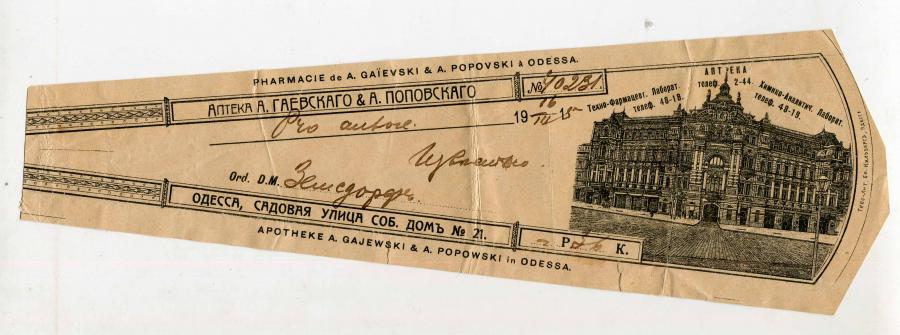 PHARMACIE de A. GAÏEVSKI & A. POPOVSKI à ODESSA.
АПТЕКА А. ГАЕВСКАГО & А. ПОПОВСКАГО
№ 40231.
19
Pro autore.
Ord. D.M.
ОДЕССА, САДОВАЯ УЛИЦА СОБ. ДОМЪ № 21.
Р. К.
APOTHEKE A. GAJEWSKI & A. POPOWSKI in ODESSA.
АПТЕКА
телеф. 2-44.
Техно-Фармацевт. Лаборат.
телеф. 48-19.
Химико-Аналитич. Лаборат.
телеф. 48-19.